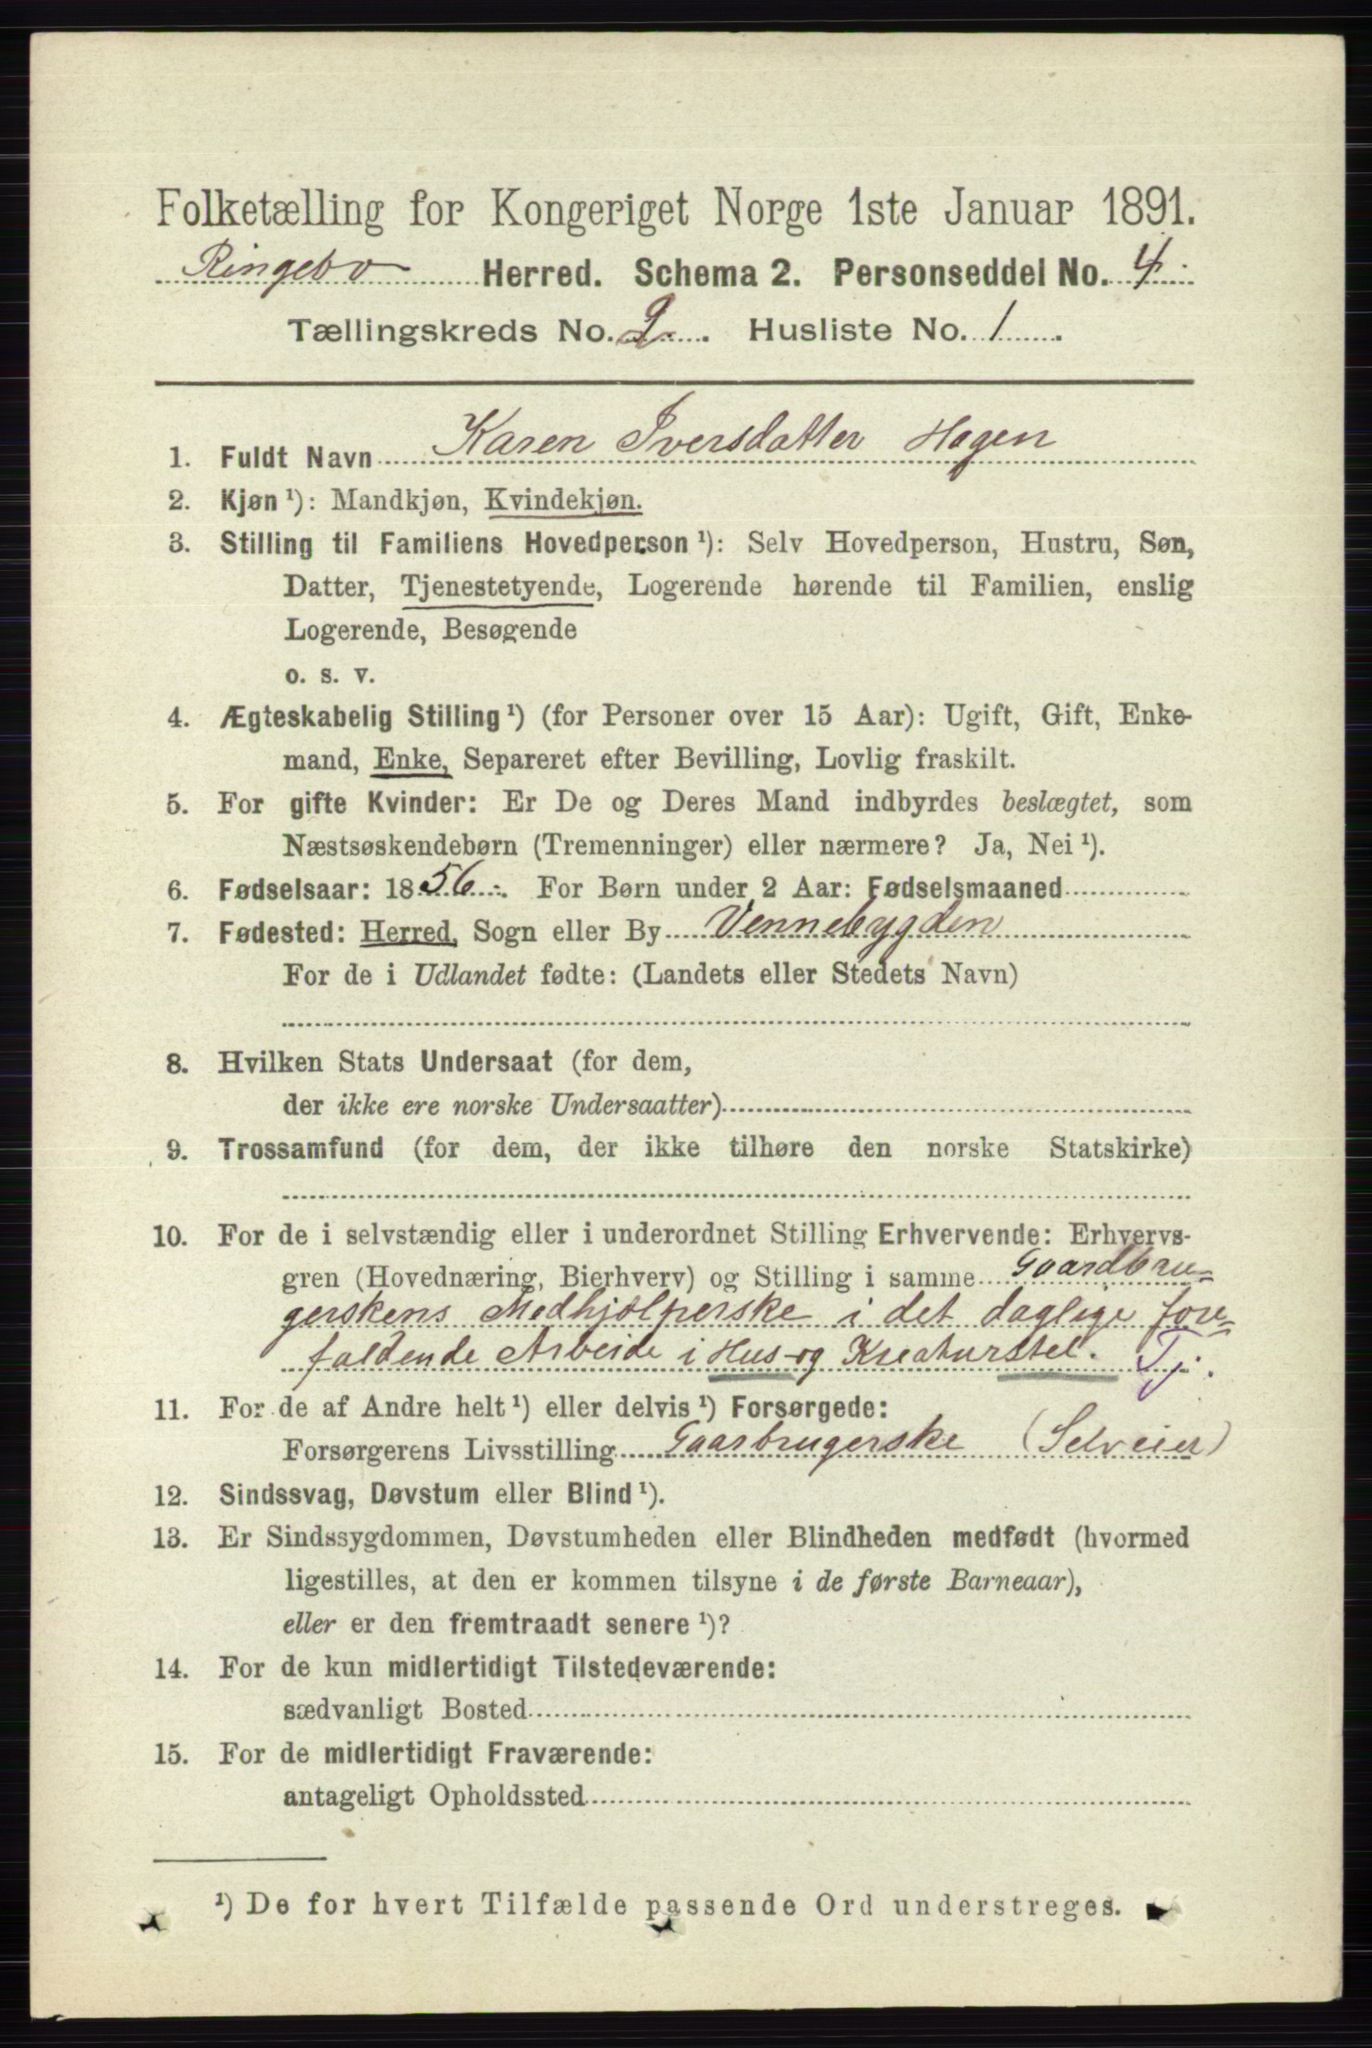 Folketælling for Kongeriget Norge 1ste Januar 1891.
Ringebo Herred. Schema 2. Personseddel No. 4.
Tællingskreds No. 2. Husliste No. 1.
1. Fuldt Navn Karen Iversdatter Hagen
2. Kjøn ¹): Mandkjøn, Kvindekjøn.
3. Stilling til Familiens Hovedperson ¹): Selv Hovedperson, Hustru, Søn,
Datter, Tjenestetyende, Logerende hørende til Familien, enslig
Logerende, Besøgende
o. s. v.
4. Ægteskabelig Stilling ¹) (for Personer over 15 Aar): Ugift, Gift, Enke-
mand, Enke, Separeret efter Bevilling, Lovlig fraskilt.
5. For gifte Kvinder: Er De og Deres Mand indbyrdes beslægtet, som
Næstsøskendebørn (Tremenninger) eller nærmere? Ja, Nei ¹).
6. Fødselsaar: 1856. For Børn under 2 Aar: Fødselsmaaned
7. Fødested: Herred, Sogn eller By Vennebygden
For de i Udlandet fødte: (Landets eller Stedets Navn)
8. Hvilken Stats Undersaat (for dem,
der ikke ere norske Undersaatter)
9. Trossamfund (for dem, der ikke tilhøre den norske Statskirke)
10. For de i selvstændig eller i underordnet Stilling Erhvervende: Erhvervs-
gren (Hovednæring, Bierhverv) og Stilling i samme Gaardbru=
gerskens Medhjælperske i det daglige fore=
faldende Arbeide i Hus- og Kreaturstel. Tj.
11. For de af Andre helt ¹) eller delvis ¹) Forsørgede:
Forsørgerens Livsstilling Gaarbrugerske (Selveier)
12. Sindssvag, Døvstum eller Blind ¹).
13. Er Sindssygdommen, Døvstumheden eller Blindheden medfødt (hvormed
ligestilles, at den er kommen tilsyne i de første Barneaar),
eller er den fremtraadt senere ¹)?
14. For de kun midlertidigt Tilstedeværende:
sædvanligt Bosted
15. For de midlertidigt Fraværende:
antageligt Opholdssted
¹) De for hvert Tilfælde passende Ord understreges.